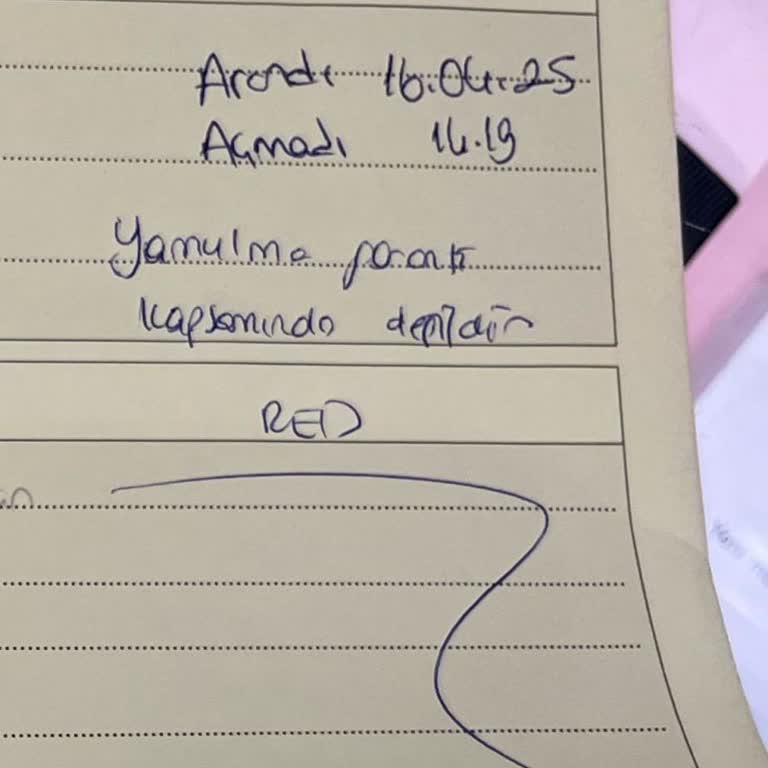 Arandı 16.04.25
Açmadı 14.19
Yamulma garanti
kapsamında değildir
RED